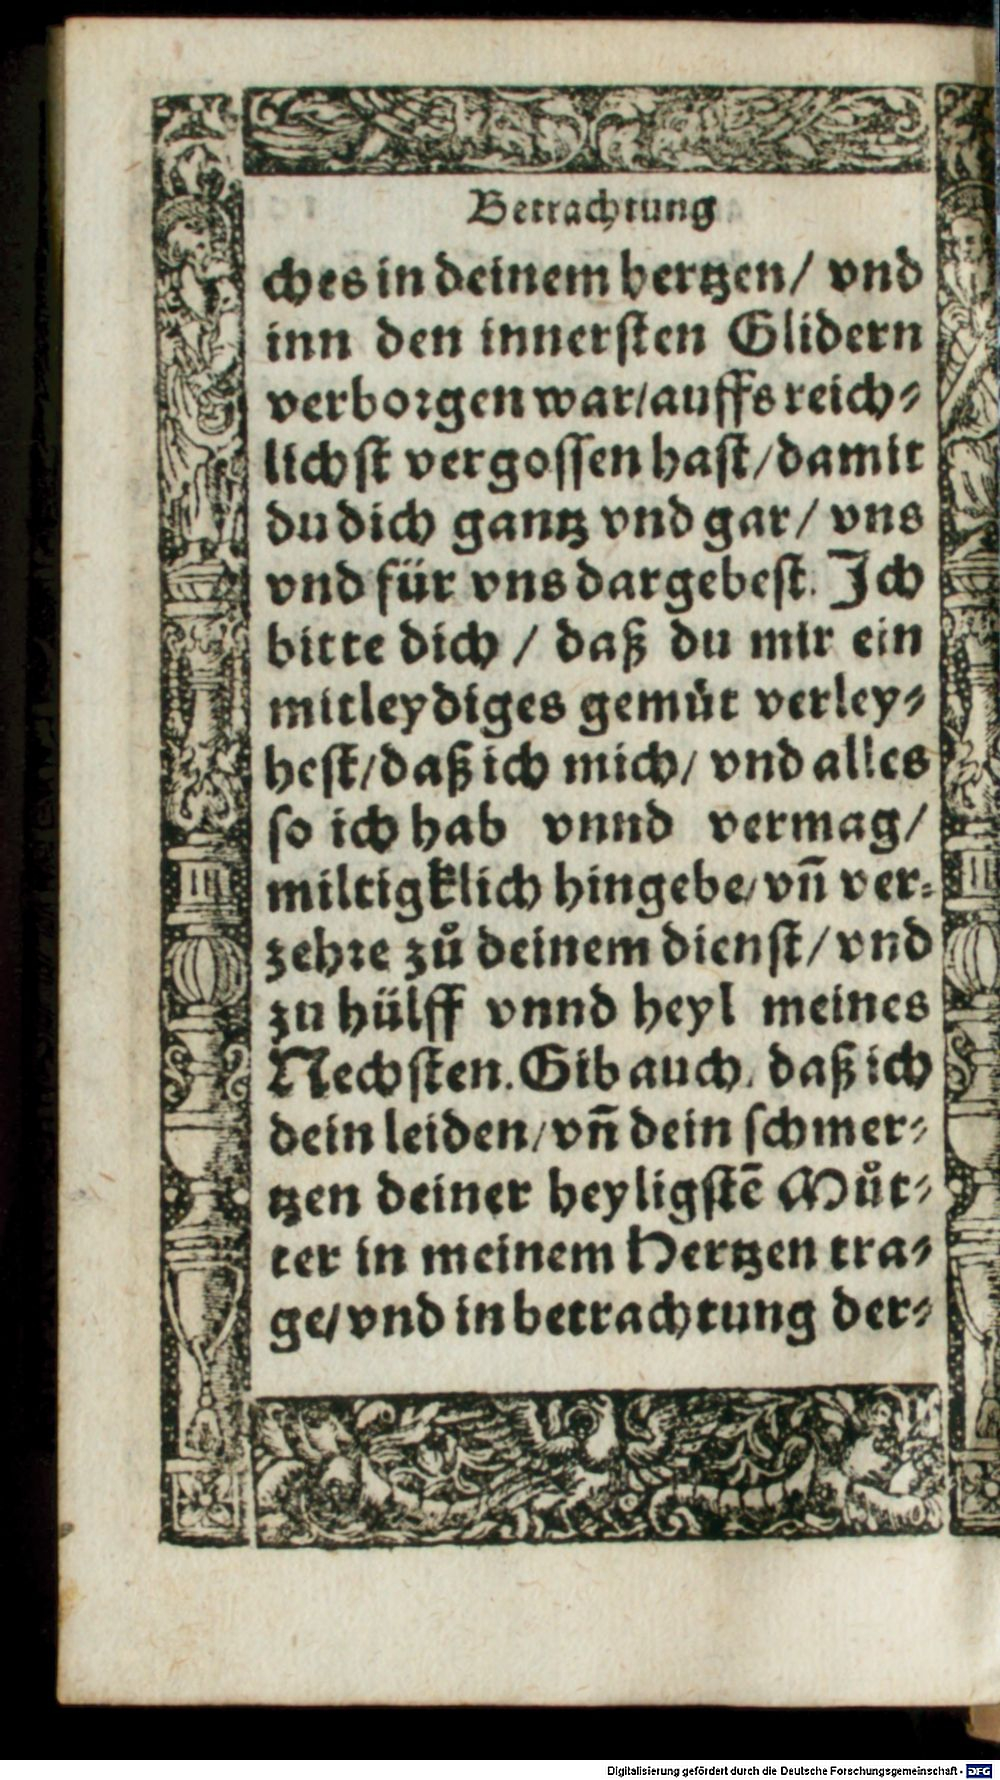 Betrachtung
ches in deinem hertzen/ vnd
inn den innersten Glidern
verborgen war/auffs reich⸗
lichst vergossen hast/damit
du dich gantz vnd gar/ vns
vnd für vns dargebest. Ich
bitte dich / daß du mir ein
mitleydiges gemüt verley⸗
hest/daß ich mich/ vnd alles
so ich hab vnnd vermag/
miltigklich hingebe/ vn̄ ver⸗
zehre zů deinem dienst/ vnd
zu hülff vnnd heyl meines
Nechsten. Gib auch, daß ich
dein leiden/vn̄ dein schmer⸗
tzen deiner heyligstē Můt⸗
ter in meinem Hertzen tra⸗
ge/vnd in betrachtung der⸗
Digitalisierung gefördert durch die Deutsche Forschungsgemeinschaft - DFG